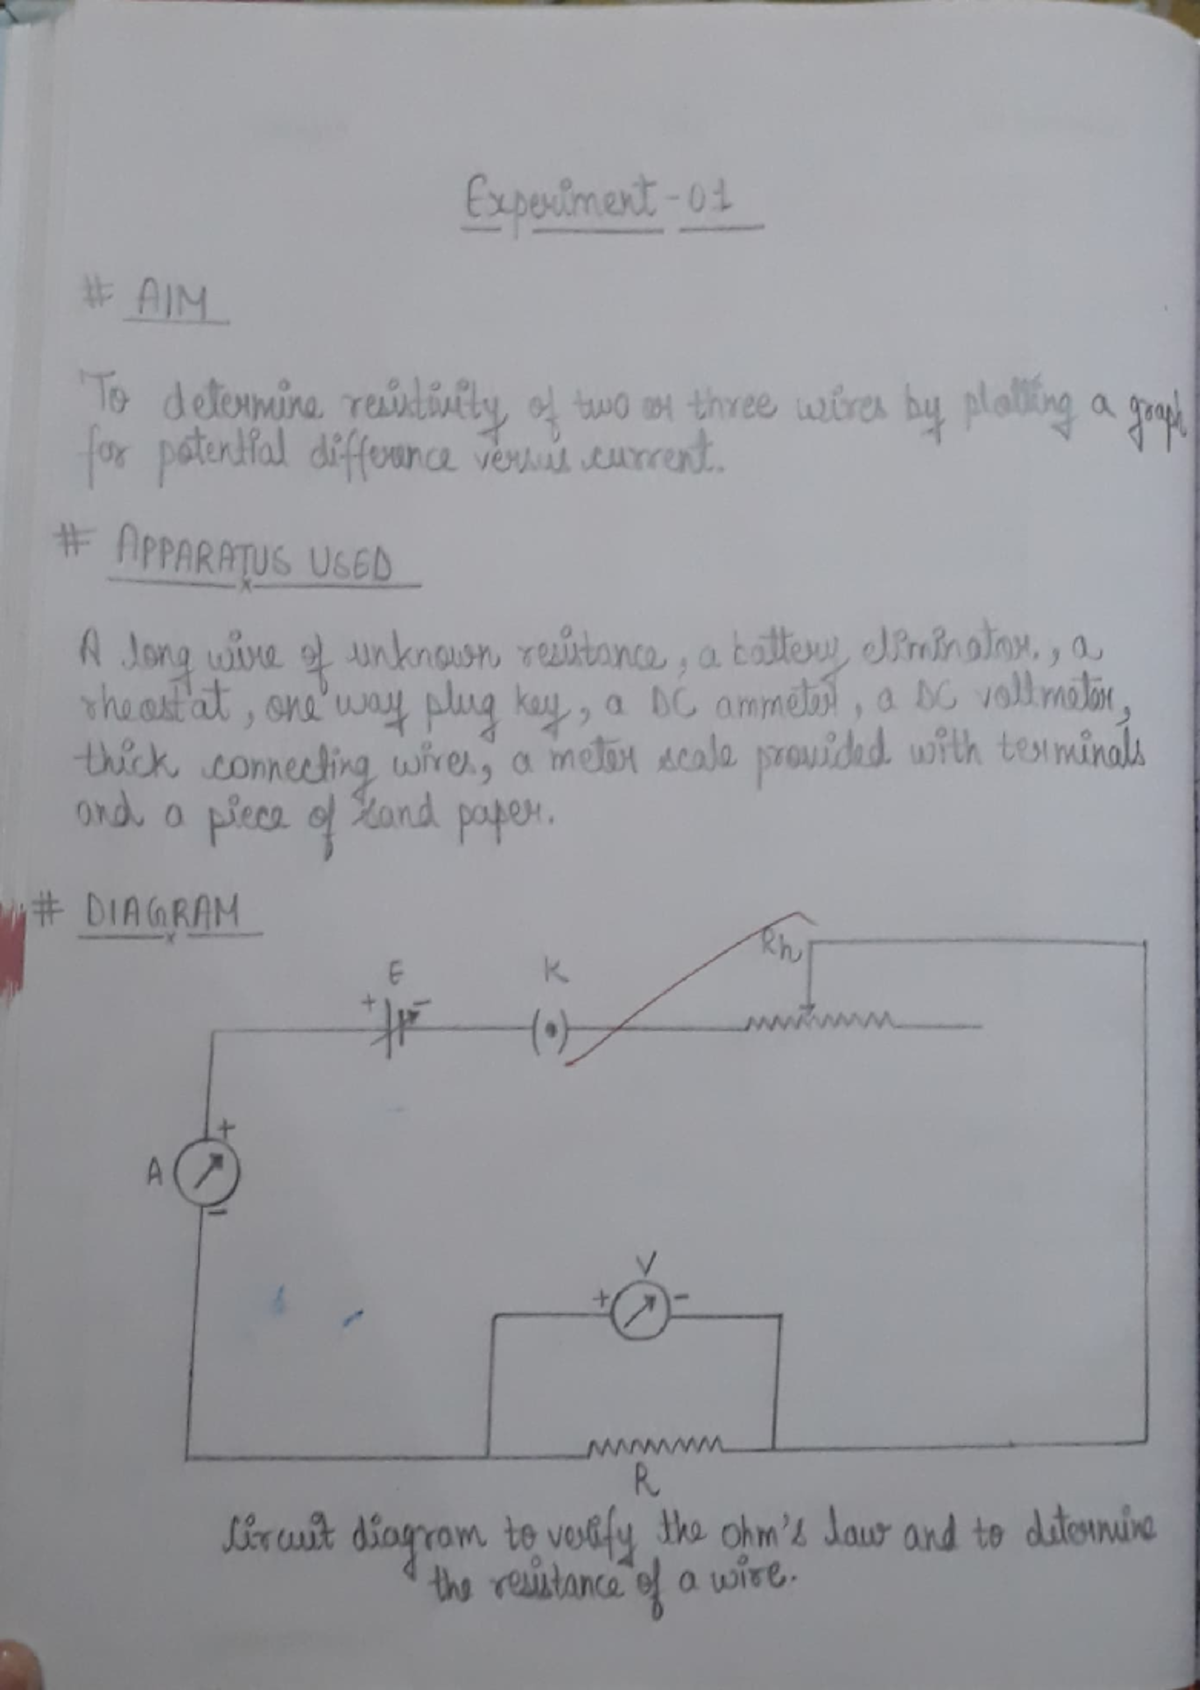 Experiment-01
# AIM
To determine resistivity of two or three wires by plotting a graph
for potential difference versus current.
# APPARATUS USED
A long wire of unknown resistance, a battery eliminator., a
rheostat, one way plug key, a DC ammeter, a DC voltmeter,
thick connecting wires, a meter scale provided with terminals
and a piece of sand paper.
# DIAGRAM
E
K
Rh
+ -
+
A
-
V
+ -
R
Circuit diagram to verify the ohm's law and to determine
the resistance of a wire.